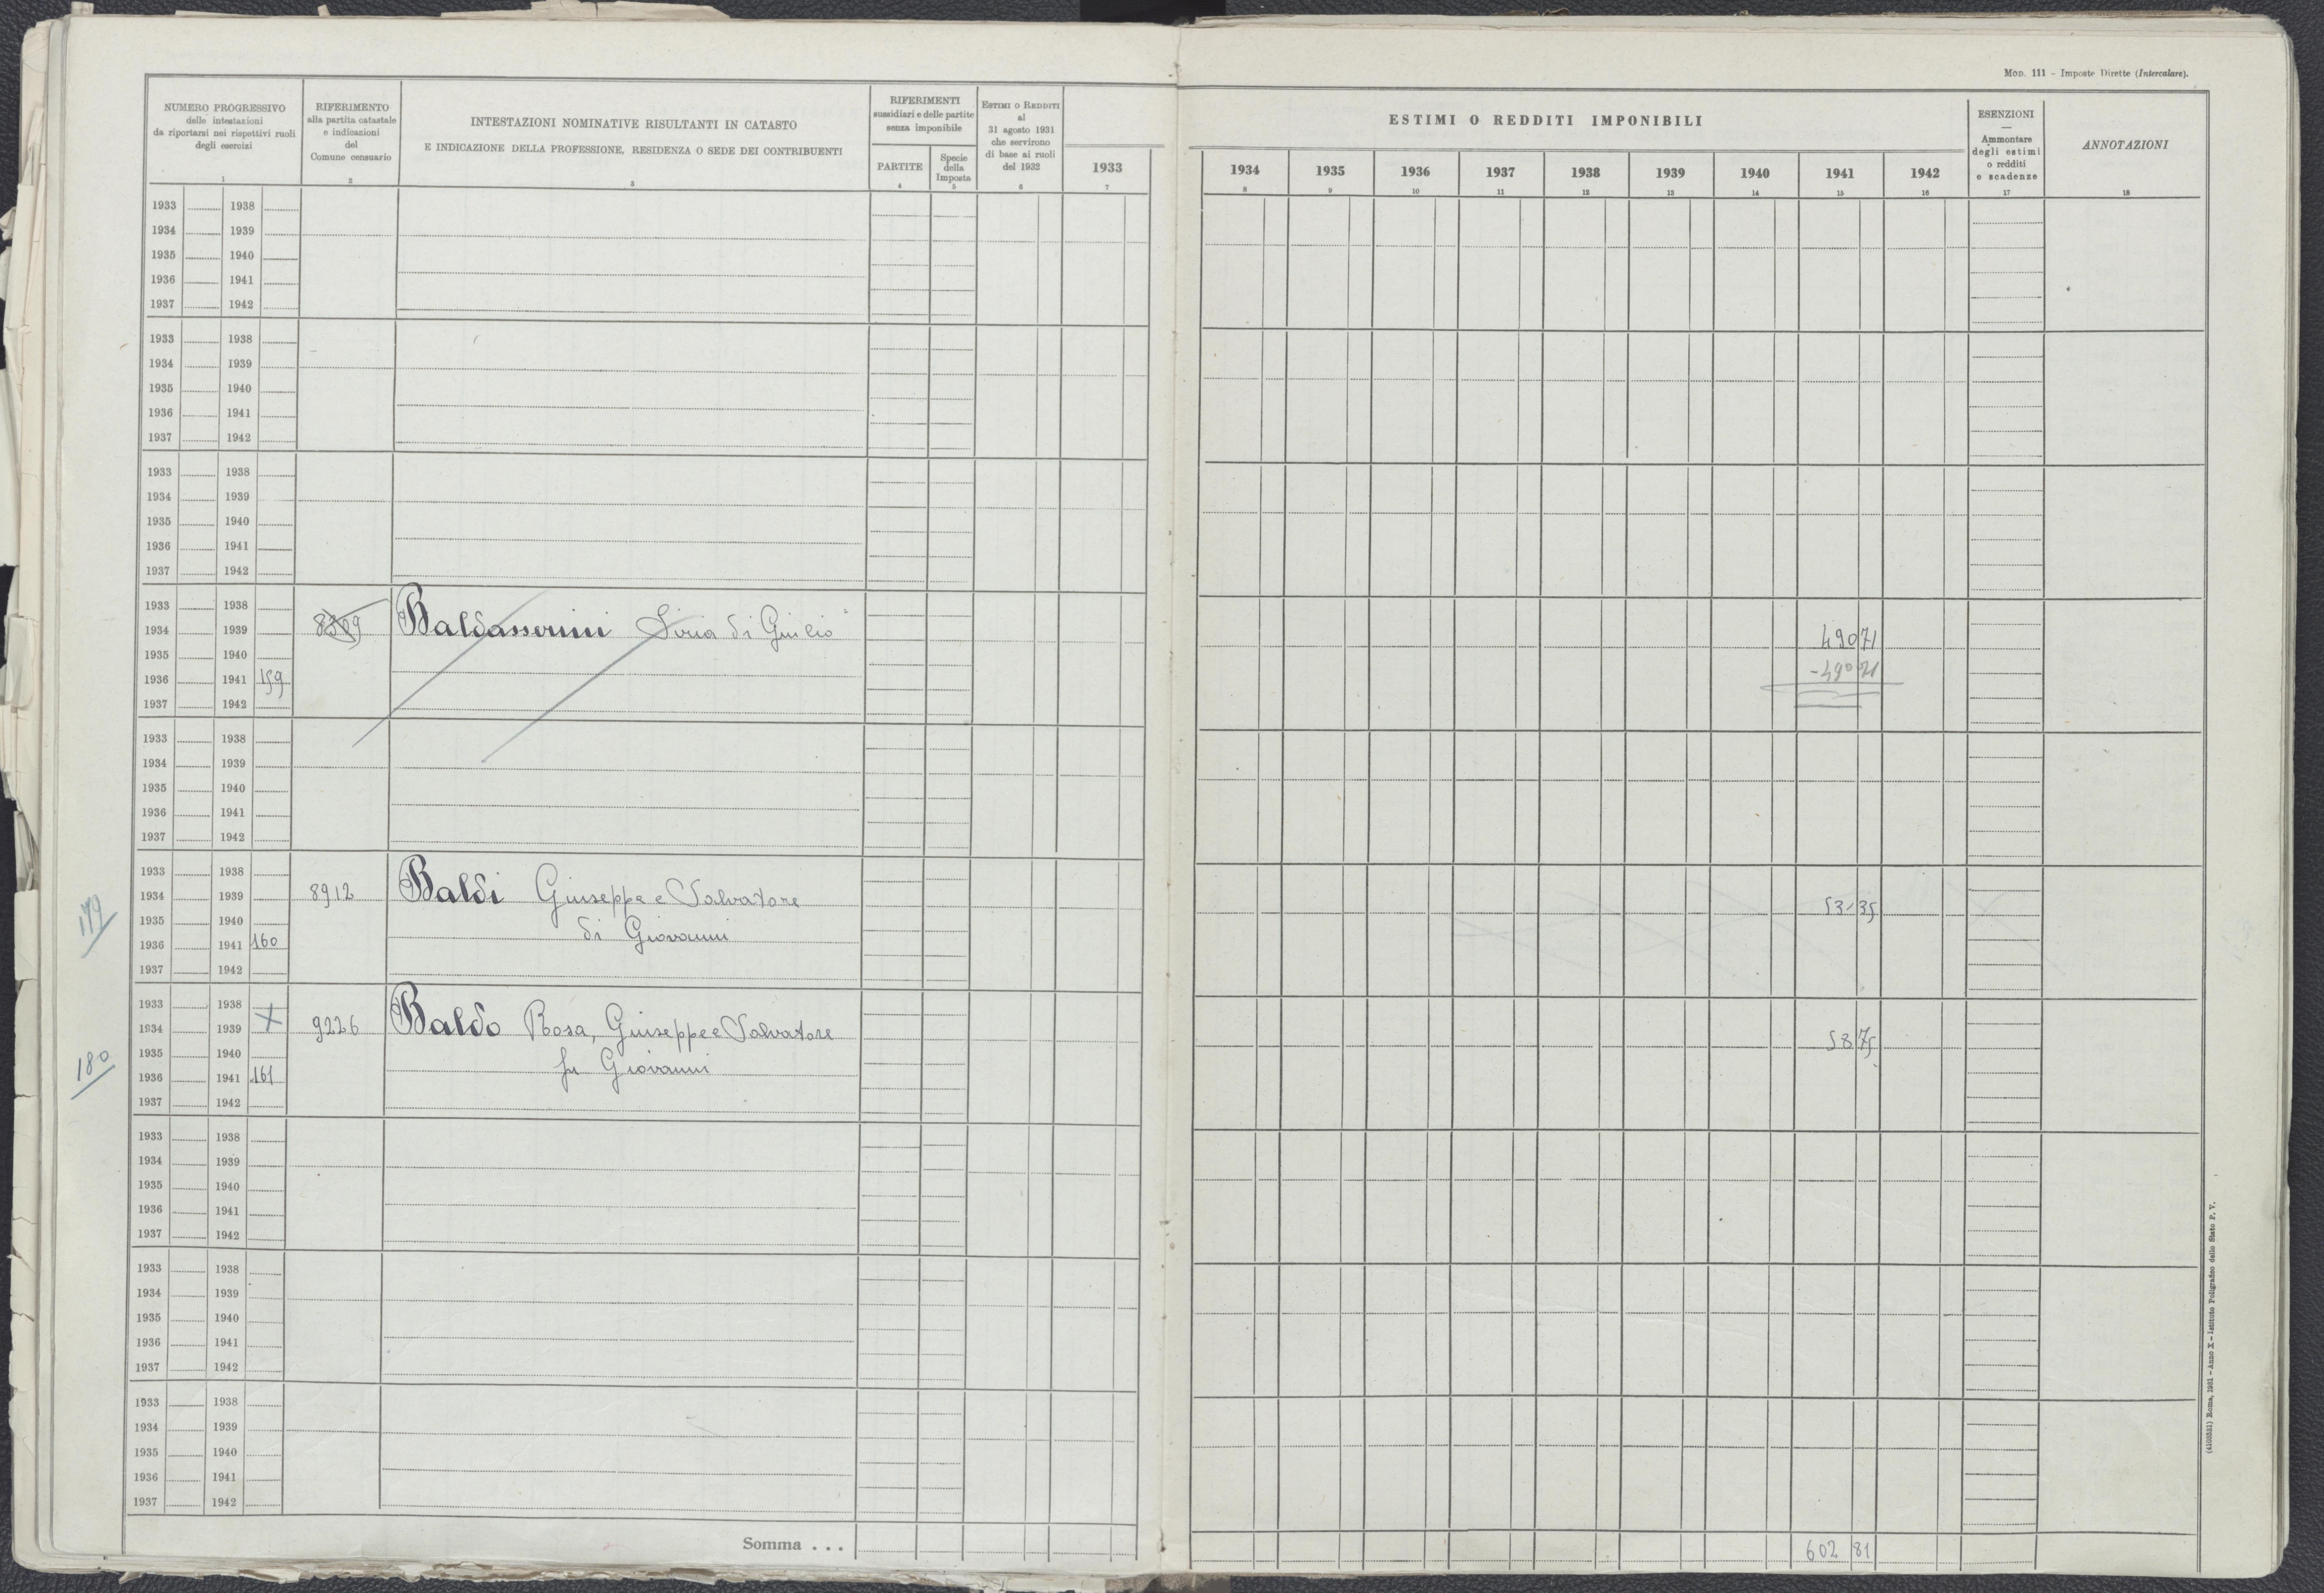 MOD. 111 – Imposte Dirette (Intercalare).
NUMERO PROGRESSIVO
delle intestazioni
da riportarsi nei rispettivi ruoli
degli esercizi
1
RIFERIMENTO
alla partita catastale
e indicazioni
del
Comune censuario
2
INTESTAZIONI NOMINATIVE RISULTANTI IN CATASTO
E INDICAZIONE DELLA PROFESSIONE, RESIDENZA O SEDE DEI CONTRIBUENTI
3
RIFERIMENTI
sussidiari e delle partite
senza imponibile
PARTITE
4
Specie
della
Imposta
5
ESTIMI O REDDITI
al
31 agosto 1931
che servirono
di base ai ruoli
del 1932
6
1933
7
ESTIMI O REDDITI IMPONIBILI
1934 1935 1936 1937 1938 1939 1940 1941 1942
8 9 10 11 12 13 14 15 16
ESENZIONI
—
Ammontare
degli estimi
o redditi
e scadenze
17
ANNOTAZIONI
18
1933 1938
1934 1939
1935 1940
1936 1941
1937 1942
1933 1938
1934 1939
1935 1940
1936 1941
1937 1942
1933 1938
1934 1939
1935 1940
1936 1941
1937 1942
1933 1938
1934 1939 8309 Baldasserini Siria di Giulio 490 71
1935 1940
1936 1941 159 -490 71
1937 1942
1933 1938
1934 1939
1935 1940
1936 1941
1937 1942
1933 1938
179 1934 1939 8912 Baldi Giuseppe e Salvatore 53 35
1935 1940 di Giovanni
1936 1941 160
1937 1942
1933 1938 X
1934 1939 9226 Baldo Rosa, Giuseppe e Salvatore 58 75
180 1935 1940 fu Giovanni
1936 1941 161
1937 1942
1933 1938
1934 1939
1935 1940
1936 1941
1937 1942
1933 1938
1934 1939
1935 1940
1936 1941
1937 1942
1933 1938
1934 1939
1935 1940
1936 1941
1937 1942
Somma . . . 602 81
(4103531) Roma, 1931 – Anno X – Istituto Poligrafico dello Stato P. V.